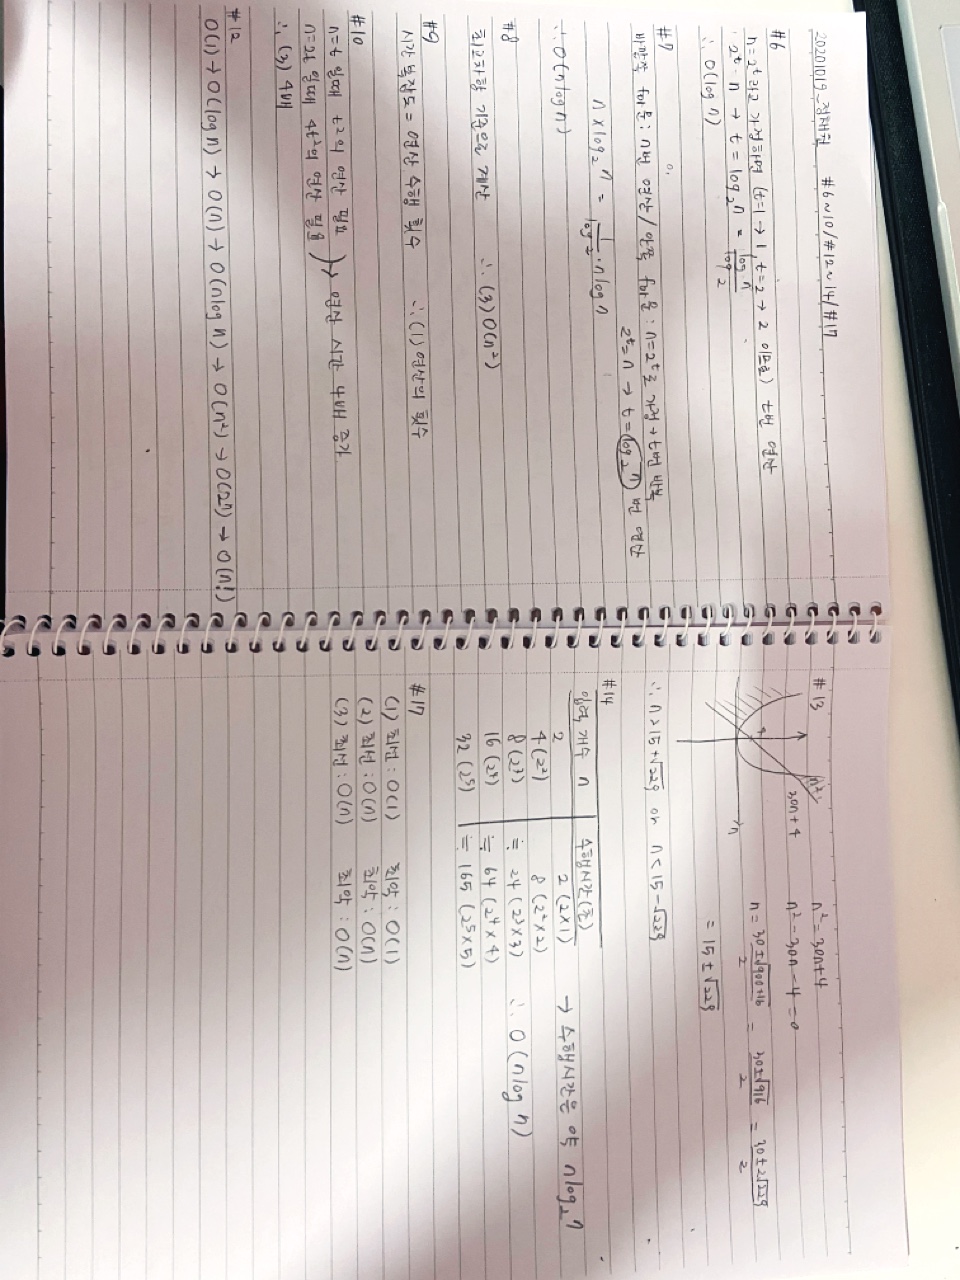 20201019 정채원 #6~10/#12~14/#17
#6
n=2^t 라고 가정하면 (t=1→1, t=2→2 이므로) t번 연산
2^t = n → t = log₂n = log n / log 2
∴ O(log n)
#7
바깥쪽 for문: n번 연산 / 안쪽 for문: n=2^t로 가정→t번 반복
2^t=n → t=log₂n 번 연산
n×log₂n = 1/log2 · nlog n
∴ O(nlog n)
#8
최고차항 기준으로 계산 ∴ (3) O(n²)
#9
시간 복잡도 = 연산 수행 횟수 ∴ (1) 연산의 횟수
#10
n=t 일때 t²의 연산 필요
→ 연산 시간 4배 증가
n=2t 일때 4t²의 연산 필요
∴ (3) 4배
#12
O(1)→O(log n)→O(n)→O(nlog n)→O(n²)→O(2ⁿ)→O(n!)
#13
30n+4
n
n² = 30n+4
n² - 30n - 4 = 0
n = 30±√900+16 / 2 = 30±√916 / 2 = 30±2√229 / 2
= 15±√229
∴ n>15+√229 or n<15-√229
#14
입력 개수 n 수행시간(초)
2 2 (2×1)
→ 수행시간은 약 nlog₂n
4 (2²) 8 (2²×2)
8 (2³) ≒ 24 (2³×3)
∴ O(nlog n)
16 (2⁴) ≒ 64 (2⁴×4)
32 (2⁵) ≒ 165 (2⁵×5)
#17
(1) 최선: O(1) 최악: O(1)
(2) 최선: O(n) 최악: O(n)
(3) 최선: O(n) 최악: O(n)